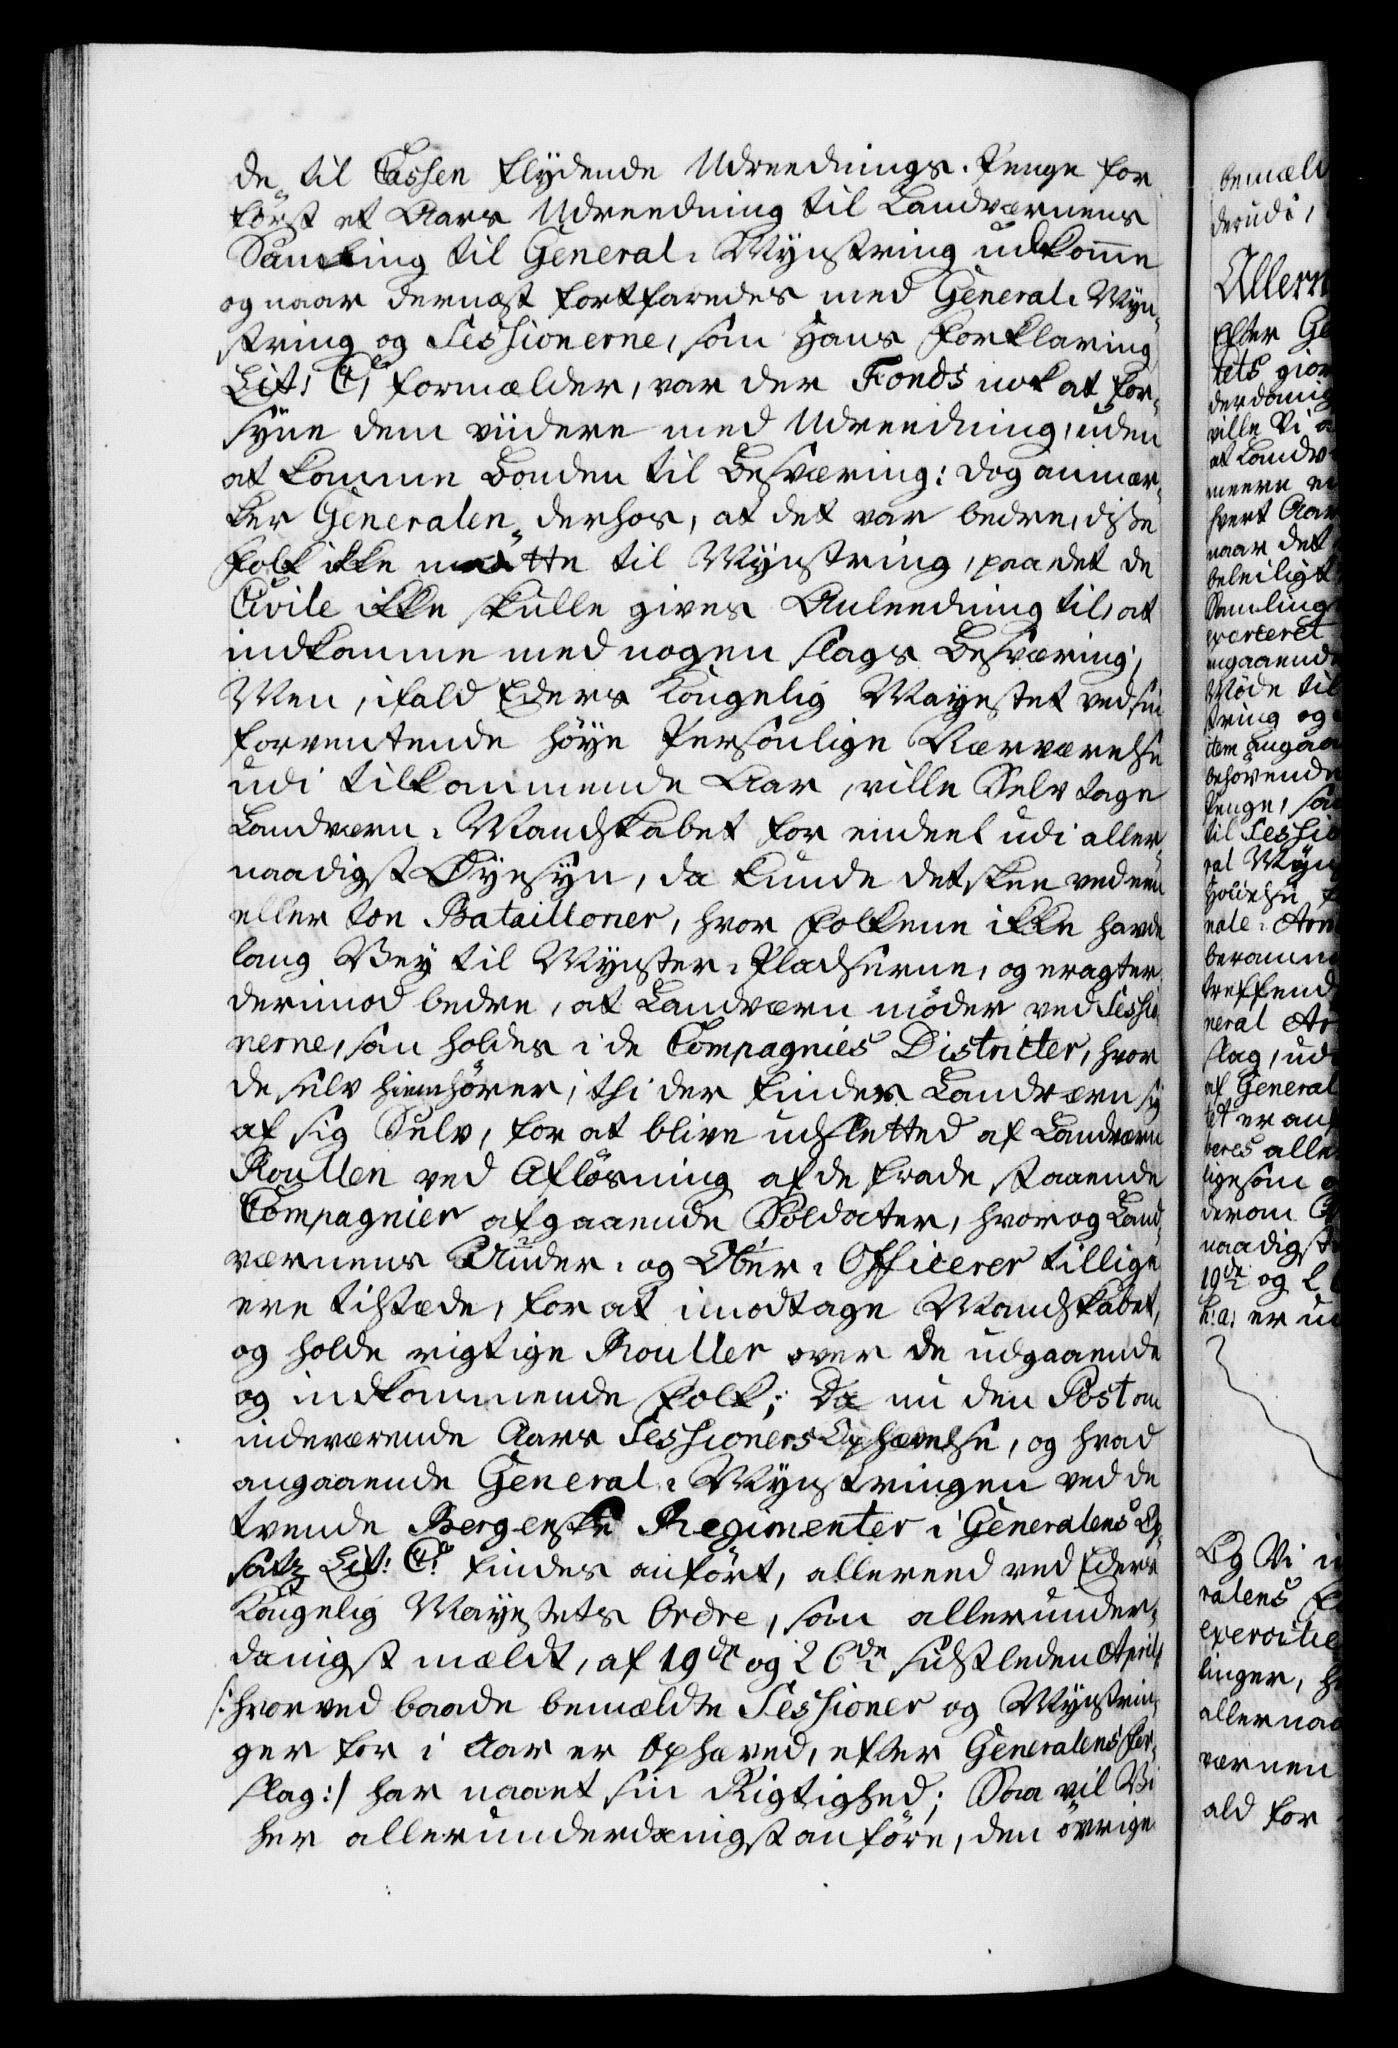 de til Cassen flydende Udreednings-Penge for
først et Aars Udreedning til Landværnens
Samling til General-Mynstring udkomme
og naar dernæst fortfaredes med General-Myn-
string og Sessionerne, som Hans Forklaring
Lit: C, formælder, var der Fonds nok at for-
syne dem viidere med Udreedning, uden
at komme Bonden til Besværing: dog anmær-
ker Generalen derhos, at det var bedre, disse
Folk ikke mødtte til Mynstring, paa det de
Civile ikke skulle gives Anleedning til, at
indkomme med nogen slags Besværing;
Men, ifald Eders Kongelig Mayestet ved sin
forventende høye Personlige Nærværelse
udi tilkommende Aar, ville Selv tage
Landværn-Mandskabet for eendeel udi aller-
naadigst Øyesyn, da kunde det skee ved een
eller toe Batailloner, hvor Folkene ikke havde
lang Vey til Mynster-Pladserne, og eragter
derimod bedre, at Landværn møder ved Sessio-
nerne, som holdes i de Compagnies Districter, hvor
de selv hiemhører; thi der finder Landværn sig
af sig Selv, for at blive udslætted af Landværn
Roullen ved Afløsning af de fra de staaende
Compagnier afgaaende Soldater, hvor og Land-
værnens Under- og Ober-Officerer tillige
ere tilstæde, for at imodtage Mandskabet,
og holde rigtige Rouller over de udgaaende
og indkommende Folk; Da nu den Post om
indeværende Aars Sessioners Ophævelse, og hvad
angaaende General-Mynstringen ved de
tvende Bergenske Regimenter i Generalens Op-
satz Lit: C. findes anført, allereed ved Eders
Kongelig Mayestets Ordre, som allerunder-
danigst mældt, af 19de og 26de sidstleden April
/: hvorved baade bemældte Sessioner og Mynstrin-
ger for i Aar er Ophæved, efter Generalens For-
slag :/ har naaet sin Rigtighed; Saa vil Vi
her allerunderdanigst anføre, den øvrige
bemæld
derudi,
Allern
Efter Ge
tets gior
derdanig
ville Vi
at Landv
meere
hvert Aar
naar det
beleiligt
Samling
exerceret
angaaende
Møde til
string og
item angaa
behøvende
Penge, saa
til Sessio
ral Myn
beramme
treffend
neral Ar
slag, ud
af General
beres alle
ligesom
derom
naadigst
19de og 2
h: a: er
Og Vi
ralens
exercitie
linger,
allernaa
værnen
ald for